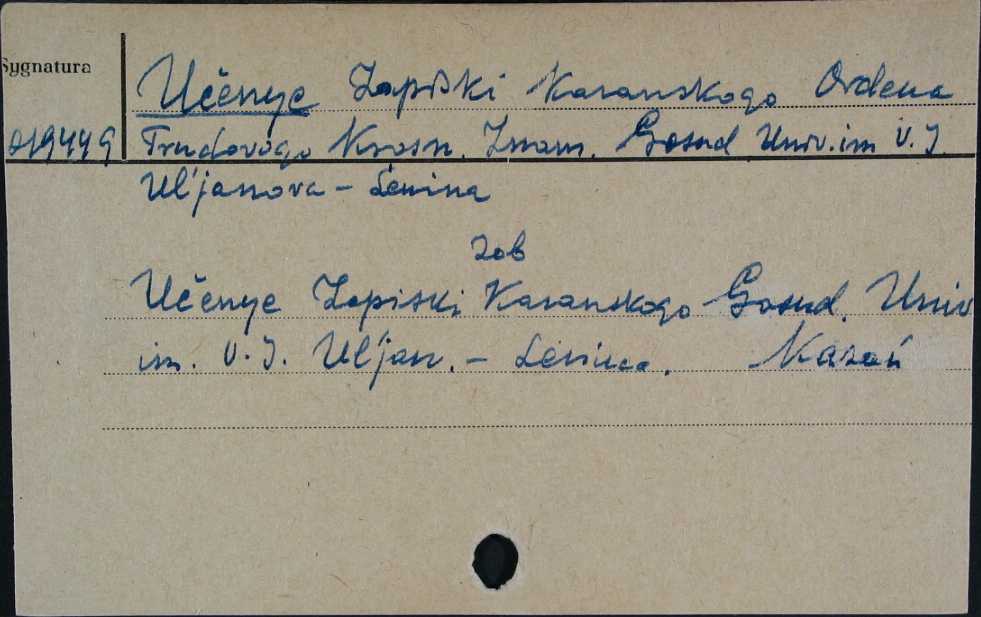 Sygnatura
Učenye Zapiski Kazanskogo Ordena
Trudovogo Krasn. Znam. Gosud Univ. im V. I.
Ul'janova - Lenina
zob
Učenye Zapiski Kazanskogo Gosud. Univ
im. V. I. Ul'jan. - Lenina. Kazań